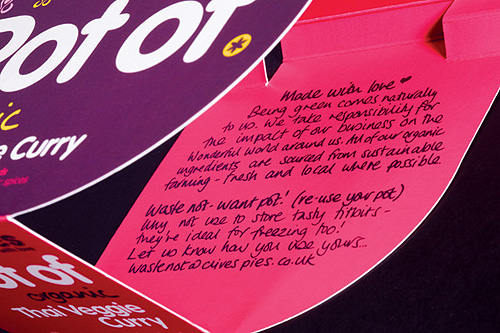 Pot of.
ic
e Curry
spices
Made with love
Being green comes naturally
to us. We take responsibility for
the impact of our business on the
Wonderful World around us. All of our organic
ingredients are sourced from sustainable
farming - fresh and local where possible.
Waste not - want pot! (re-use your pot)
Why not use to store tasty titbits -
they're ideal for freezing too!
Let us know how you use yours...
wastenot@clivespies.co.uk
ot of
organic
Thai Veggie
Curry